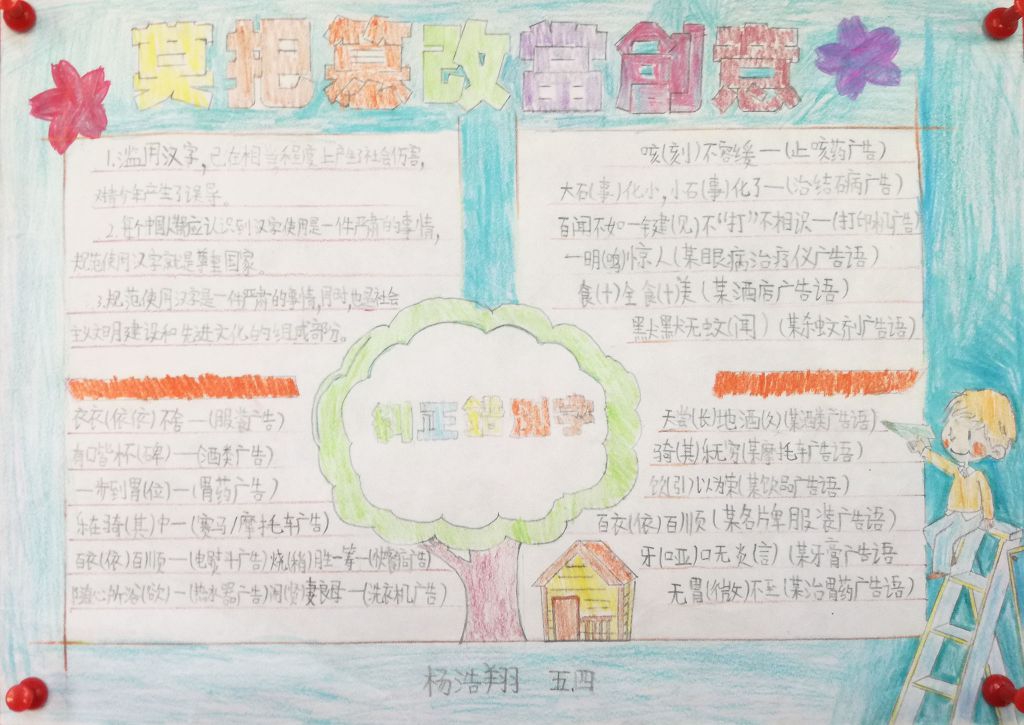 莫把篡改当创意
1.滥用汉字,已在相当程度上产生了社会伤害,
对青少年产生了误导。
2.每个中国人都应认识到汉字使用是一件严肃的事情,
规范使用汉字就是尊重国家。
3.规范使用汉字是一件严肃的事情,同时也是社会
主义文明建设和先进文化的组成部分。
衣衣(依依)不舍—(服装广告)
有口皆杯(碑)—(酒类广告)
一步到胃(位)—(胃药广告)
乐在骑(其)中—(赛马/摩托车广告)
百衣(依)百顺—(电熨斗广告)烧(稍)胜一筹—
随心所浴(欲)—(热水器广告)闲(贤)妻良母—(洗衣机广告)
纠正错别字
咳(刻)不容缓—(止咳药广告)
大石(事)化小,小石(事)化了—(治结石病广告)
百闻不如一键(见)不“打”不相识—(打印机广告)
一明(鸣)惊人(某眼病治疗仪广告语)
食(十)全食(十)美(某酒店广告语)
默默无蚊(闻)(某杀蚊剂广告语)
天尝(长)地酒(久)(某酒类广告语)
骑(其)乐无穷(某摩托车广告语)
饮(引)以为荣(某饮品广告语)
百衣(依)百顺(某名牌服装广告语)
牙(哑)口无炎(言)(某牙膏广告语
无胃(微)不至(某治胃药广告语)
杨浩翔 五.四